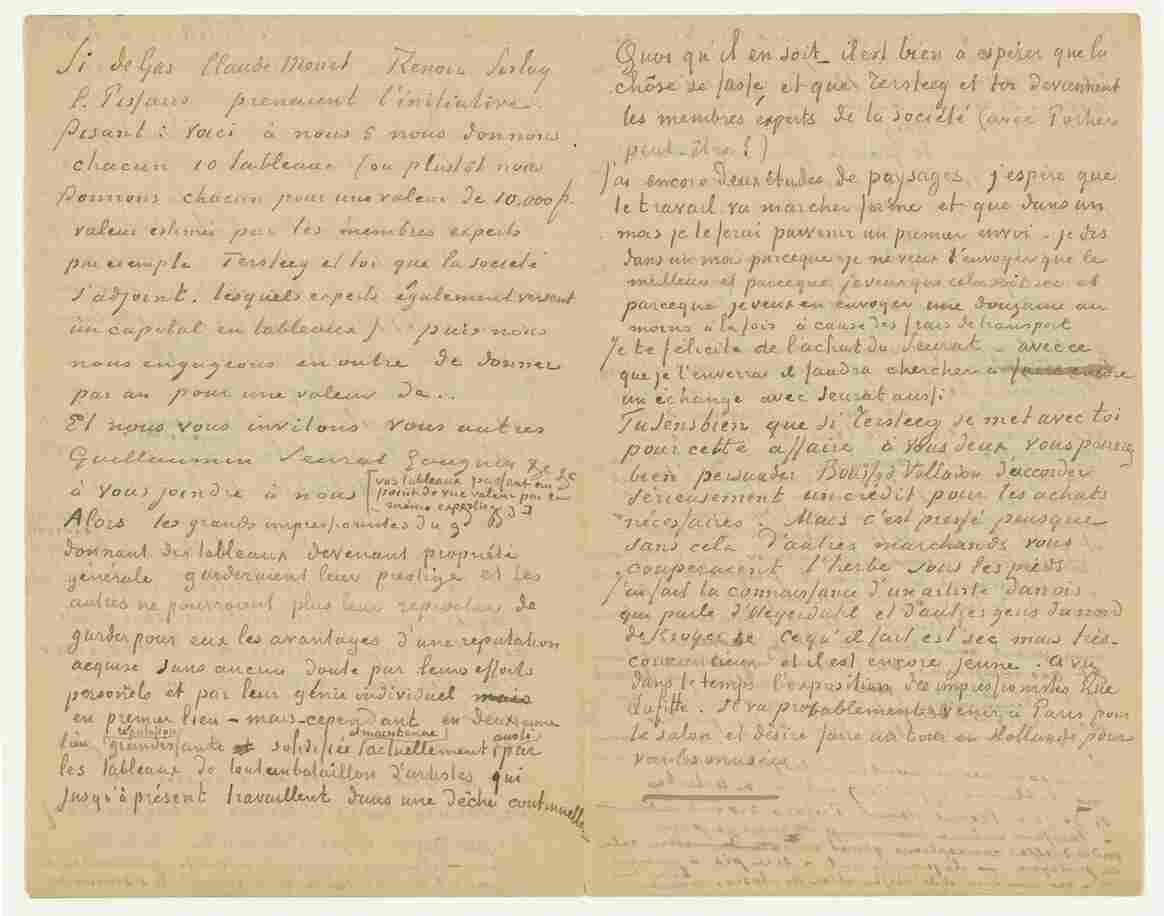 Si de Gas Claude Monet Renoir Sisley
C. Pissarro prenaient l'initiative
Disant : voici à nous 5 nous donnons
chacun 10 tableaux (ou plustôt nous
donnons chacun pour une valeur de 10.000 f.
valeur estimée par les membres experts
par exemple Tersteeg et toi que la société
s'adjoint. lesquels experts également versent
un capital en tableaux) puis nous
nous engageons en outre de donner
par an pour une valeur de..
Et nous vous invitons vous autres
Guillaumin Seurat Gauguin &c &c
à vous joindre à nous [vos tableaux passant au
point de vue valeur par la
même expertise]
Alors les grands impressionistes du gd Bd
donnant des tableaux devenant propriété
générale garderaient leur prestige et les
autres ne pourraient plus leur reprocher de
garder pour eux les avantages d'une reputation
acquise sans aucun doute par leurs efforts
personels et par leur génie individuel mais
en premier lieu – mais – cependant en deuxième
lieu [reputation] grandissante et solidifiée [& maintenue] actuellement [aussi] par
les tableaux de tout un bataillon d'artistes qui
jusqu'à présent travaillent dans une dèche continuelle.
Quoi qu'il en soit – il est bien à espérer que la
chôse se fasse et que Tersteeg et toi deviennent
les membres experts de la société (avec Portier
peut-être ?)
J'ai encore deux études de paysages, j'espère que
le travail va marcher ferme et que dans un
mois je te ferai parvenir un premier envoi – je dis
dans un mois parceque je ne veux t'envoyer que le
meilleur et parceque je veux que cela soit sec et
parceque je veux en envoyer une douzaine au
moins à la fois à cause des frais de transport
Je te félicite de l'achat du Seurat – avec ce
que je t'enverrai il faudra chercher à faire encore
un échange avec Seurat aussi
Tu sens bien que si Tersteeg se met avec toi
pour cette affaire à vous deux vous pourrez
bien persuader Boussod Valladon d'accorder
serieusement un crédit pour les achats
nécessaires. Mais c'est pressé puisque
sans cela d'autres marchands vous
couperaient l'herbe sous les pieds
J'ai fait la connaissance d'un artiste danois
qui parle d'Heyerdahl et d'autres gens du nord
de Kroyer &c ce qu'il fait est sec mais très-
consciencieux et il est encore jeune. A vu
dans le temps l'exposition des impressionistes Rue
Lafitte. Il va probablement venir à Paris pour
le salon et désire faire un tour en Hollande pour
voir les musées